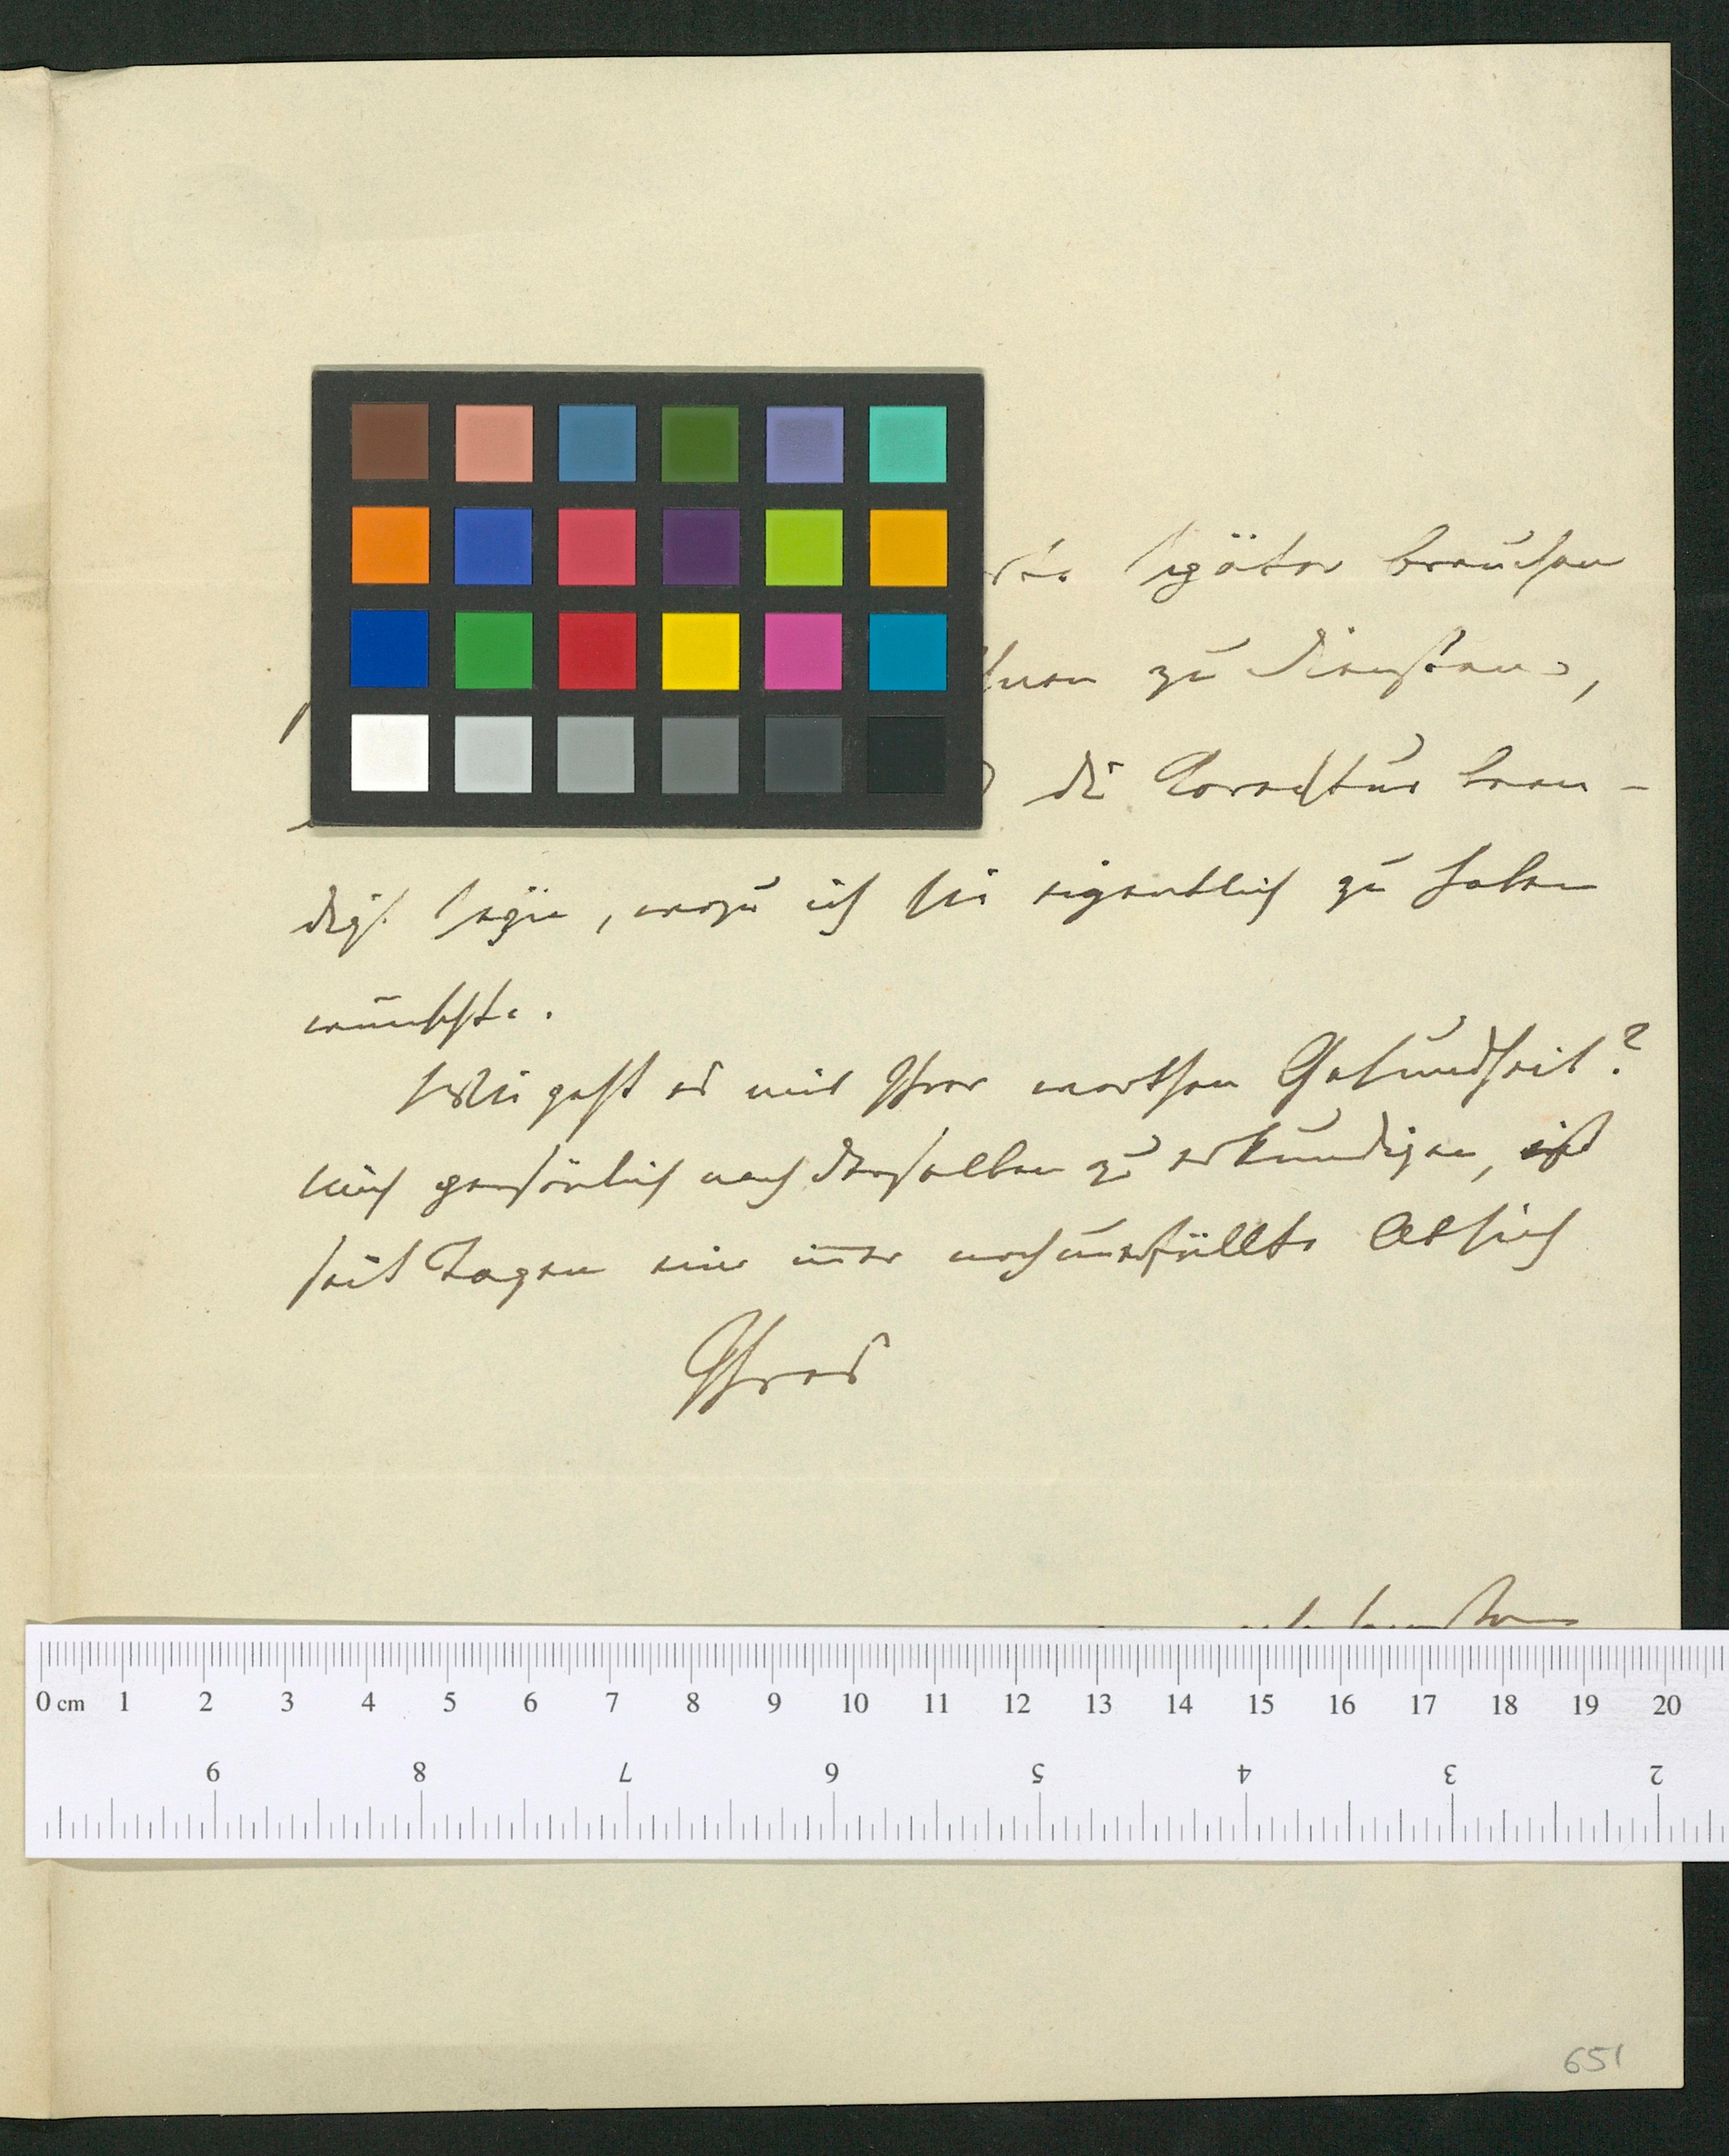 später brauchen
Ihnen zu Diensten,
die Correctur been-
digt sein, wozu ich sie eigentlich zu haben
wünschte.
Wie geht es mit Ihrer werthen Gesundheit?
mich persönlich nach derselben zu erkundigen, ist
seit Tagen eine im̄er noch unerfüllte Absich
Ihres
0 cm 1 2 3 4 5 6 7 8 9 10 11 12 13 14 15 16 17 18 19 20
9 8 7 6 5 4 3 2
651